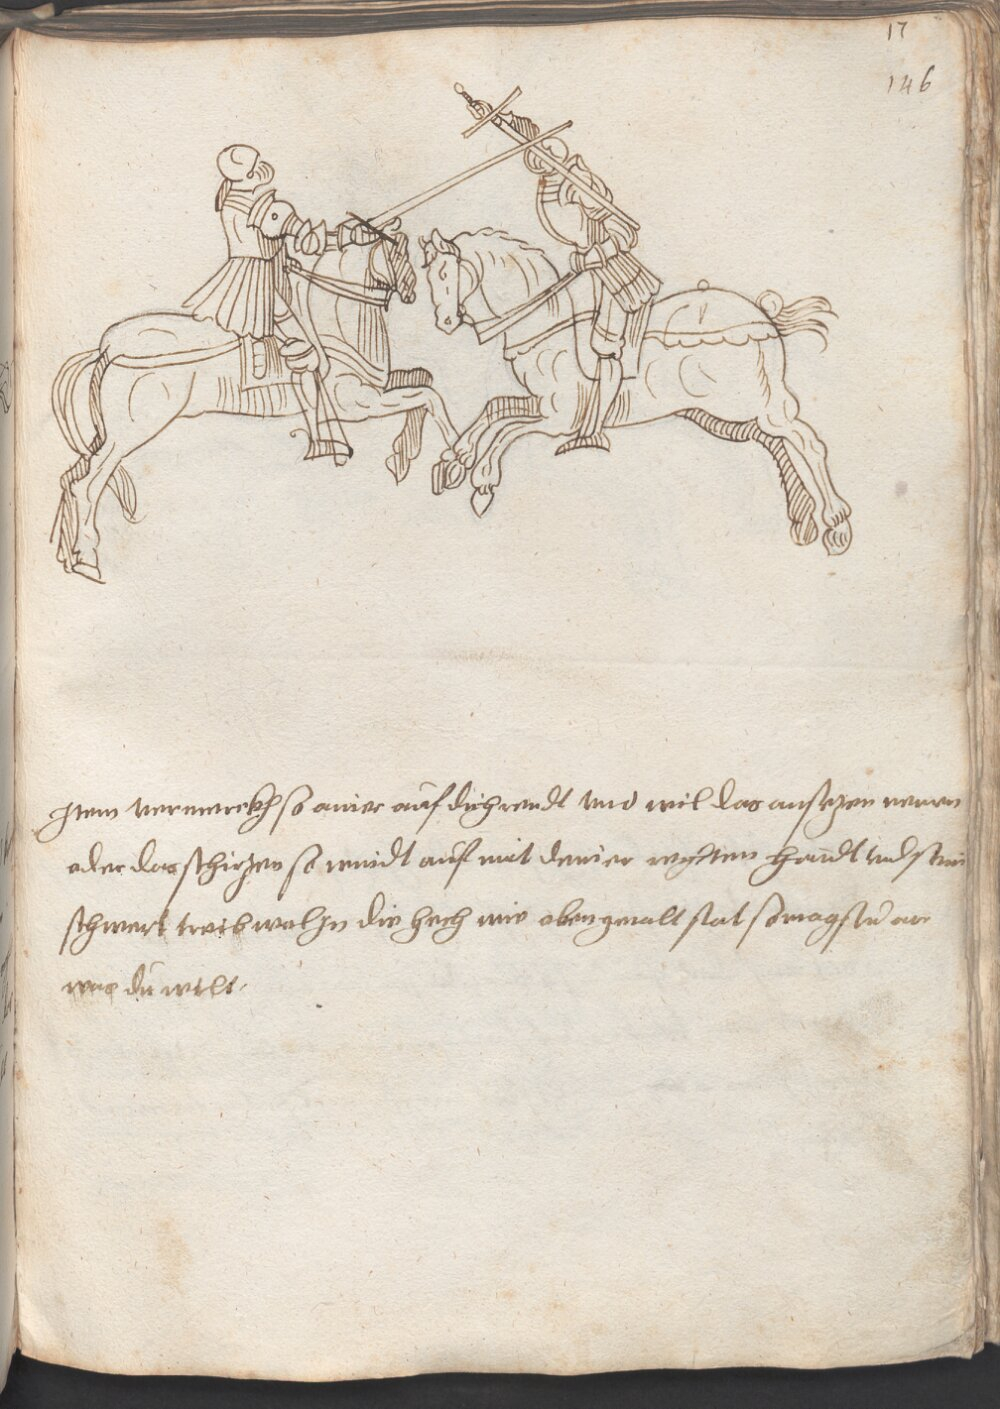 17
146
Item vermerckh so ainer auf dich rendt vnd wil das ansezen
oder das schiessen so windt auf mit deiner rechten handt vnd
schwert treib wol In die hech wie oben gemalt stat so magstu
was du wilt.